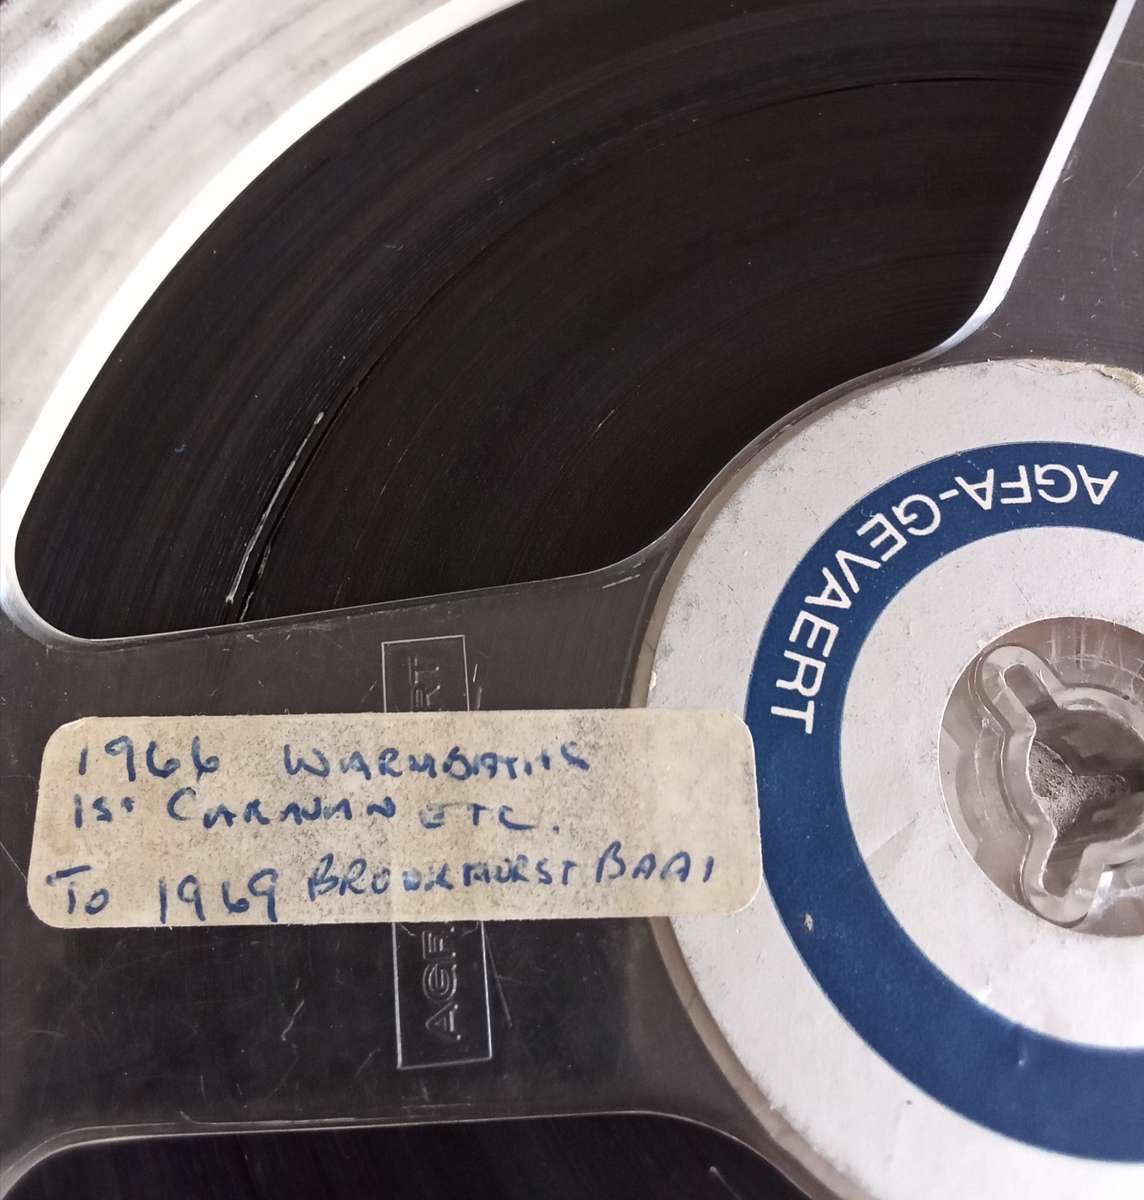 1966 WARMBATHS
1ST CARAVAN ETC.
TO 1969 BRONKHURST BAAI
AGFA-GEVAERT
AGF RT